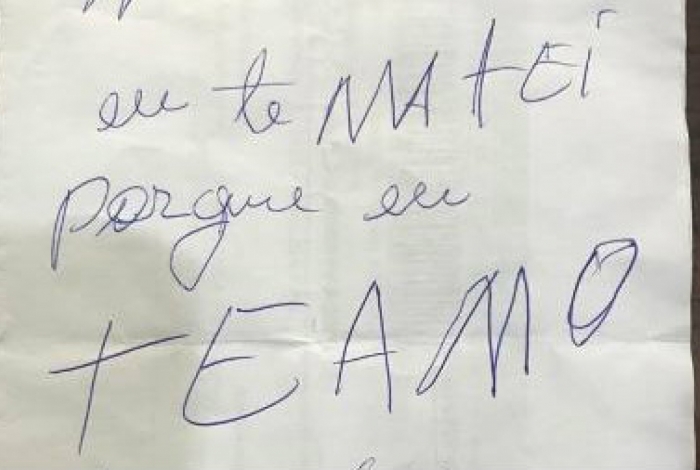 eu te MATEI
porque eu
TEAMO